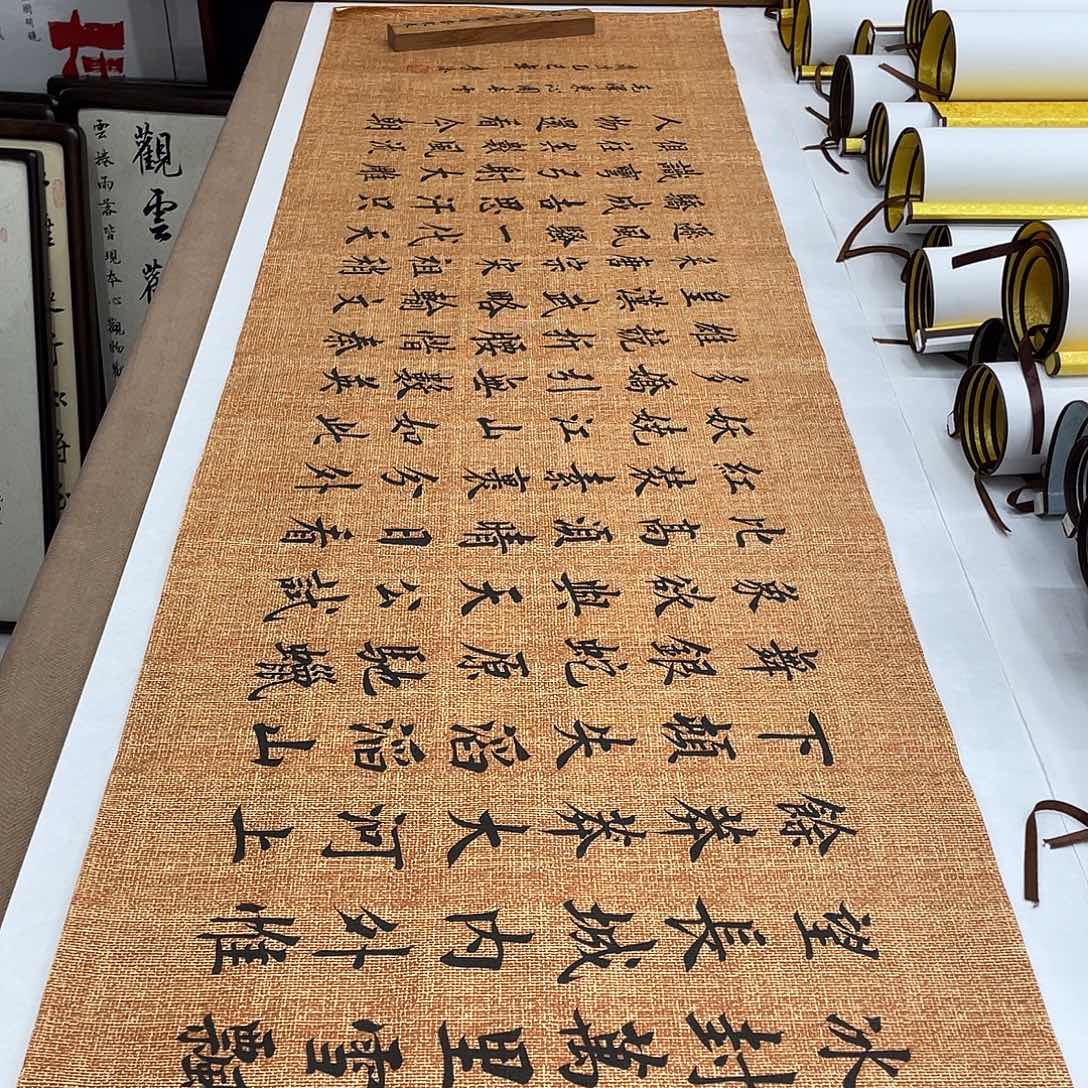 冰封萬里雪飄
望長城內外惟
餘莽莽大河上
下頓失滔滔山
舞銀蛇原馳蠟
象欲與天公試
比高須晴日看
紅妝素裹分外
妖嬈江山如此
多嬌引無數英
雄競折腰惜秦
皇漢武略輸文
采唐宗宋祖稍
遜風騷一代天
驕成吉思汗只
識彎弓射大雕
俱往矣數風流
人物還看今朝
毛澤東沁園春雪
乙巳
觀雲
雲捲雨落皆現本心觀物